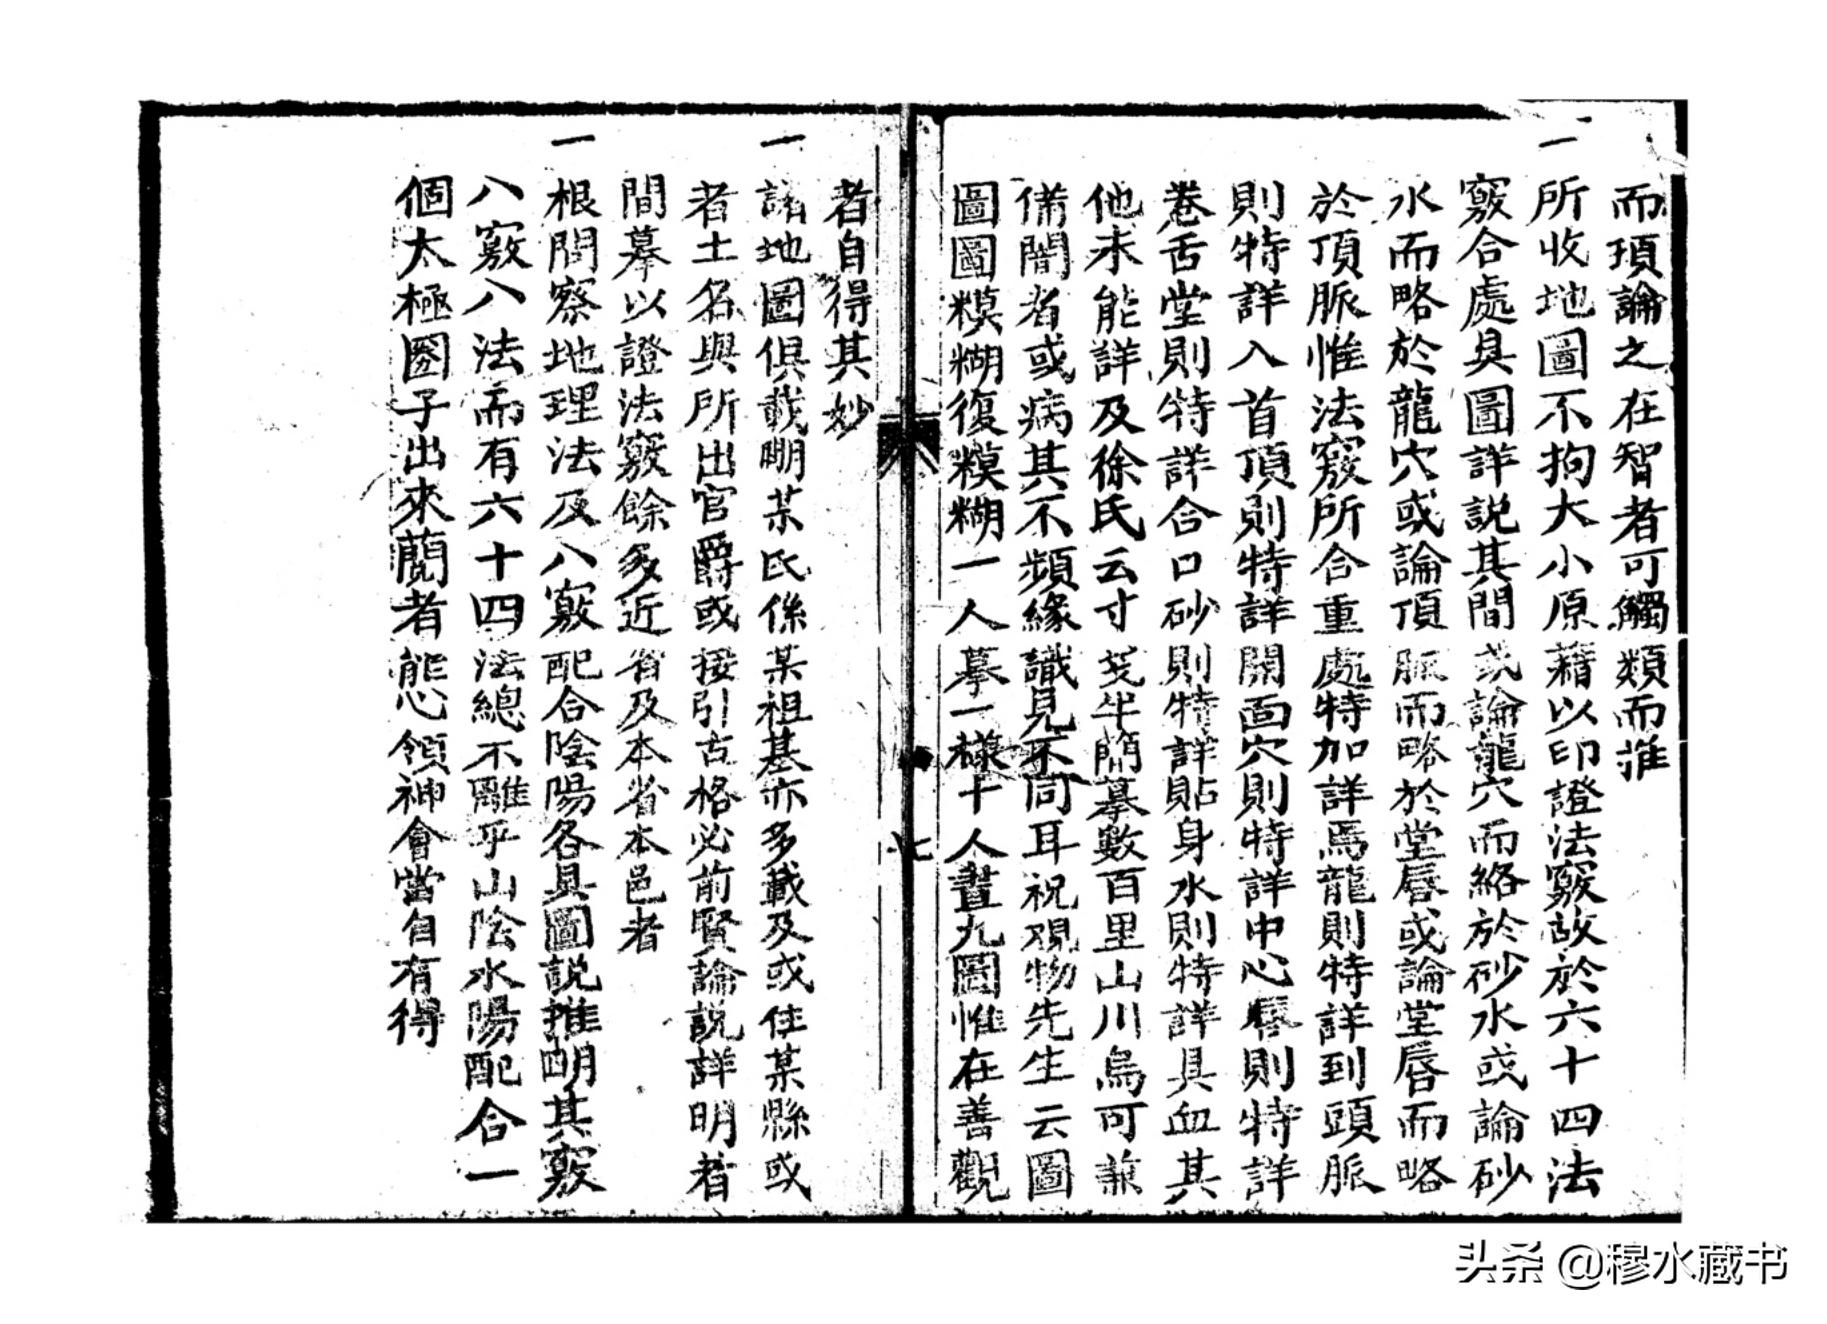 而瑣論之在智者可觸類而推
一所收地圖不拘大小原藉以印證法竅故於六十四法
竅合處具圖詳説其間或論龍穴而絡於砂水或論砂
水而略於龍穴或論頂脈而略於堂唇或論堂唇而略
於頂脈惟法竅所合重處特加詳焉龍則特詳到頭脈
則特詳入首頂則特詳開面穴則特詳中心唇則特詳
卷舌堂則特詳合口砂則特詳貼身水則特詳具血其
他未能詳及徐氏云寸芠半簡摹數百里山川烏可兼
備閱者或病其不頻緣識見不同耳祝覌物先生云圖
圖圖糢糊復糢糊一人摹一樣十人畫九圖惟在善觀
者自得其妙
一諸地圖俱載明某氏係某祖基亦多載及或住某縣或
者土名與所出官爵或接引古格必前賢論説詳明者
間摹以證法竅餘多近省及本省本邑者
一根問察地理法及八竅配合陰陽各具圖説推明其竅
八竅八法而有六十四法總不離乎山陰水陽配合一
個太極圈子出來閱者能心領神會當自有得
七
头条 @穆水藏书